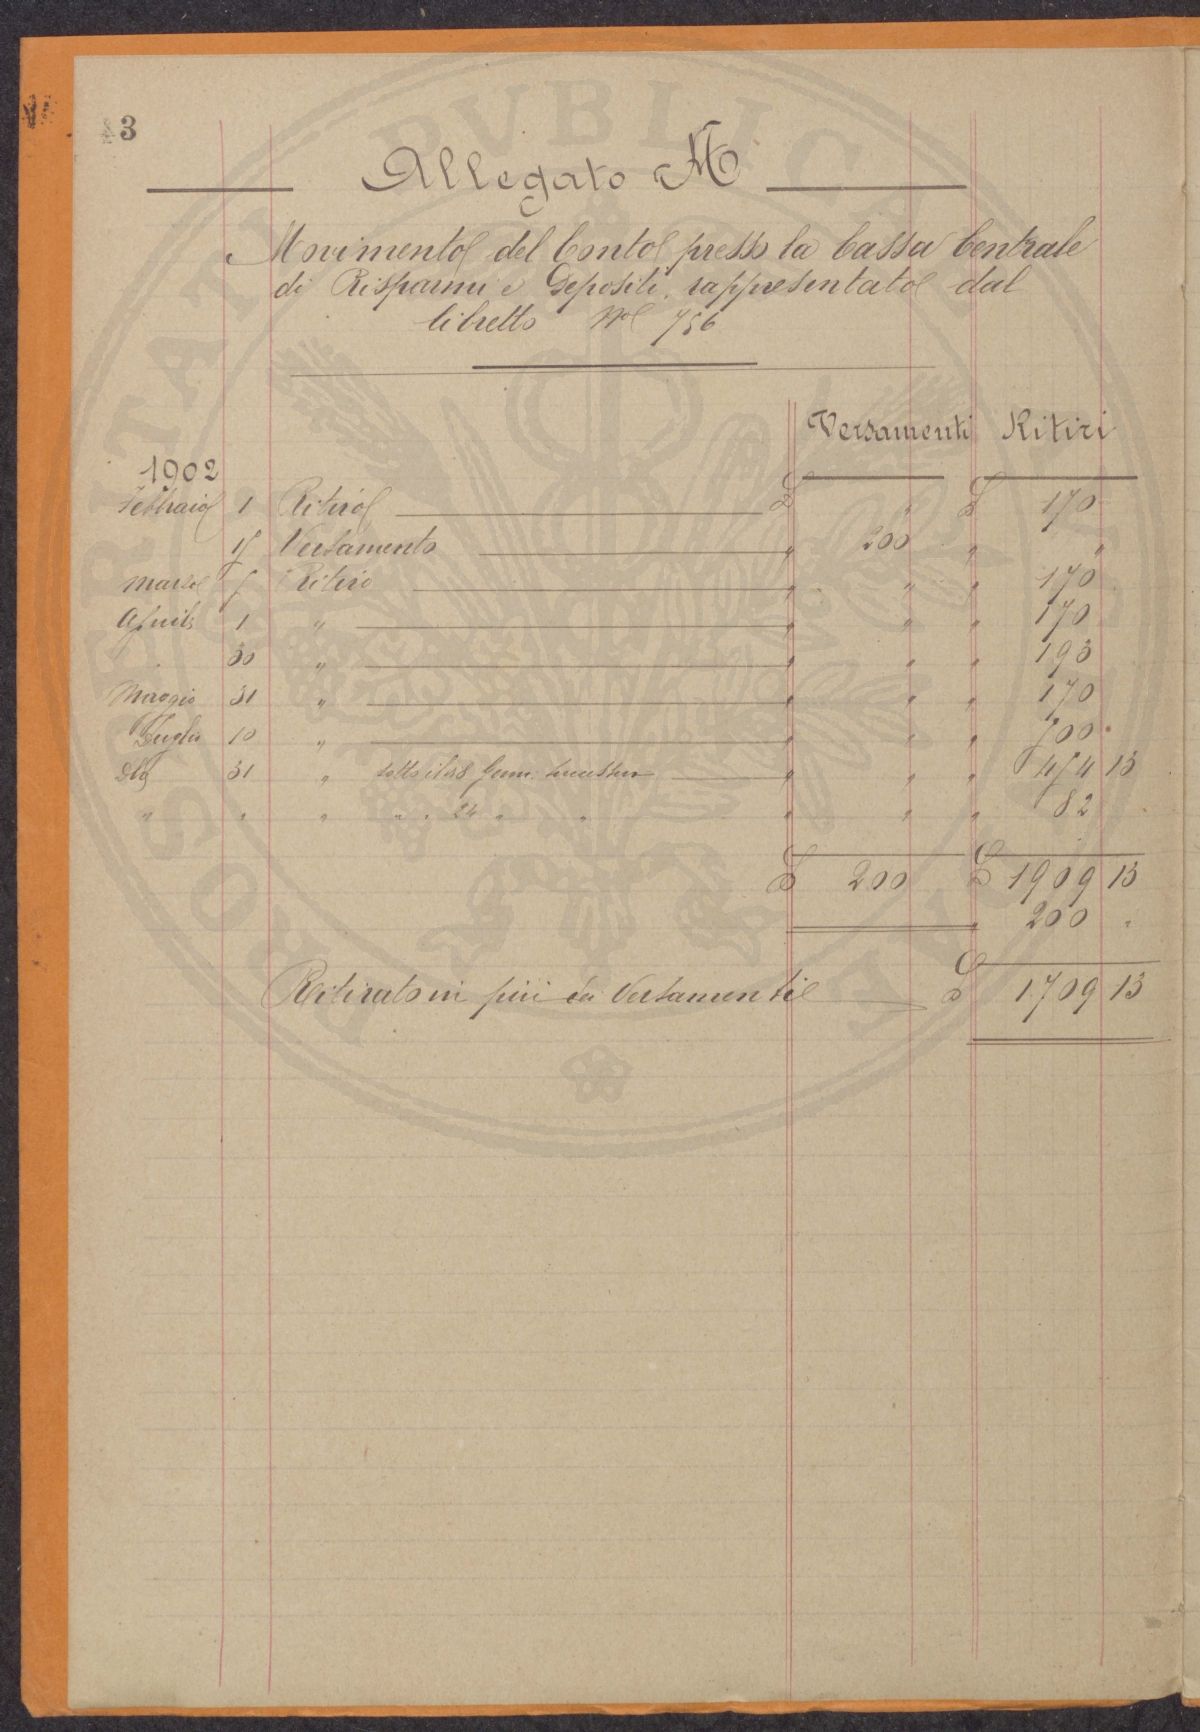 3
Allegato M
Movimento del Conto presso la Cassa Centrale
di Risparmi e Depositi, rappresentato dal
libretto No 756
Versamenti Ritiri
1902
Febbraio 1 Ritiro £ " £ 170
15 Versamento " 200 " "
Marzo 5 Ritiro " " " 170
Aprile 1 " " " " 170
30 " " " " 193
Maggio 31 " " " " 170
Luglio 10 " " " " 500
Dto 31 " " " " 454 13
" " " " " 24 " " " " " 82
£ 200 £ 1909 13
" 200 "
Ritirato in più dei Versamenti £ 1709 13